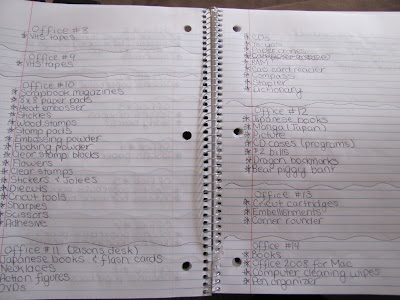 Office #8
*VHS tapes
Office #9
*VHS tapes
Office #10
*Scrapbook magazines
*8x8 paper pads
*Heat embosser
*Stickles
*Wood stamps
*Stamp pads
*Embossing powder
*Flocking powder
*Clear stamp blocks
*Flowers
*Clear stamps
*Stickers & Jolees
*Diecuts
*Cricut tools
*Sharpies
*Scissors
*Adhesive
Office #11 (Jasons desk)
Japanese books & flash cards
Necklaces
Action figures
DVDs
*CDs
*
*
*
*RAM
*card reader
*Compass
*Stapler
*Dictionary
Office #12
*Japanese books
*Manga (Japan)
*Picture
*CD cases (programs)
*$2 bills
*Dragon bookmarks
*Bear piggy bank
Office #13
*Cricut cartridges
*Embellishments
*Corner rounder
Office #14
*Books
*Office 2008 for Mac
*Computer cleaning wipes
*Pen organizer